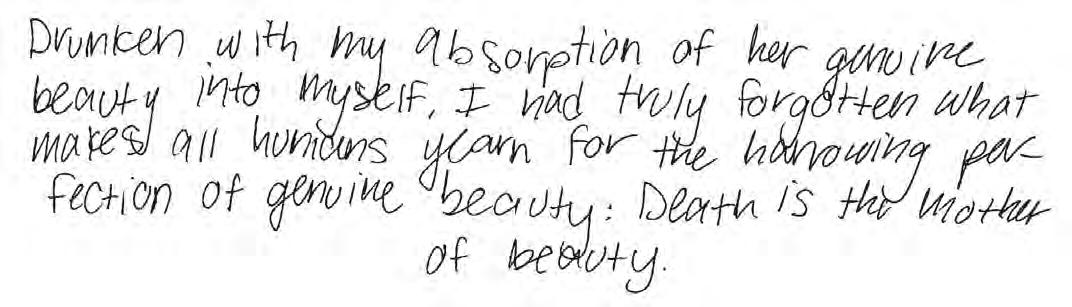 Drunken with my absorption of her genuine
beauty into myself, I had truly forgotten what
makes all humans yearn for the harrowing per-
fection of genuine beauty: Death is the mother
of beauty.